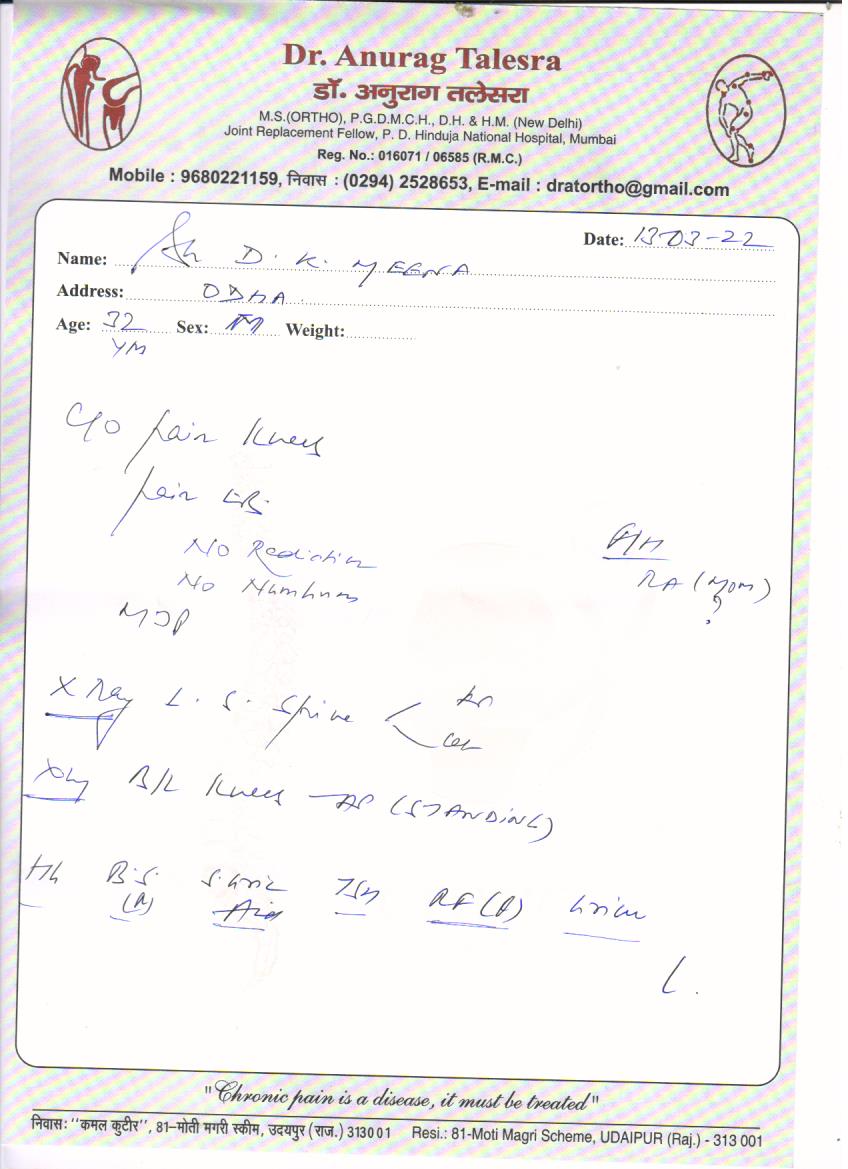 Dr. Anurag Talesra
डॉ. अनुराग तलेसरा
M.S.(ORTHO), P.G.D.M.C.H., D.H. & H.M. (New Delhi)
Joint Replacement Fellow, P. D. Hinduja National Hospital, Mumbai
Reg. No.: 016071 / 06585 (R.M.C.)
Mobile : 9680221159, निवास : (0294) 2528653, E-mail : dratortho@gmail.com
Date: 13-03-22
Name: Sh D. K. MEENA
Address: ODHA
Age: 32 Sex: M Weight:
YM
C/O pain Knees
pain LB.
No Radiation
No Numbness
F/H
RA (Mom)
?
MJP
X Ray L. S. Spine < AP
Lat
XRay B/L Knees - AP (STANDING)
Hb B.S. S. Uric TSH RF (A) Urine
(R) Acid
"Chronic pain is a disease, it must be treated"
निवास: "कमल कुटीर", 81-मोती मगरी स्कीम, उदयपुर (राज.) 313001 Resi.: 81-Moti Magri Scheme, UDAIPUR (Raj.) - 313 001